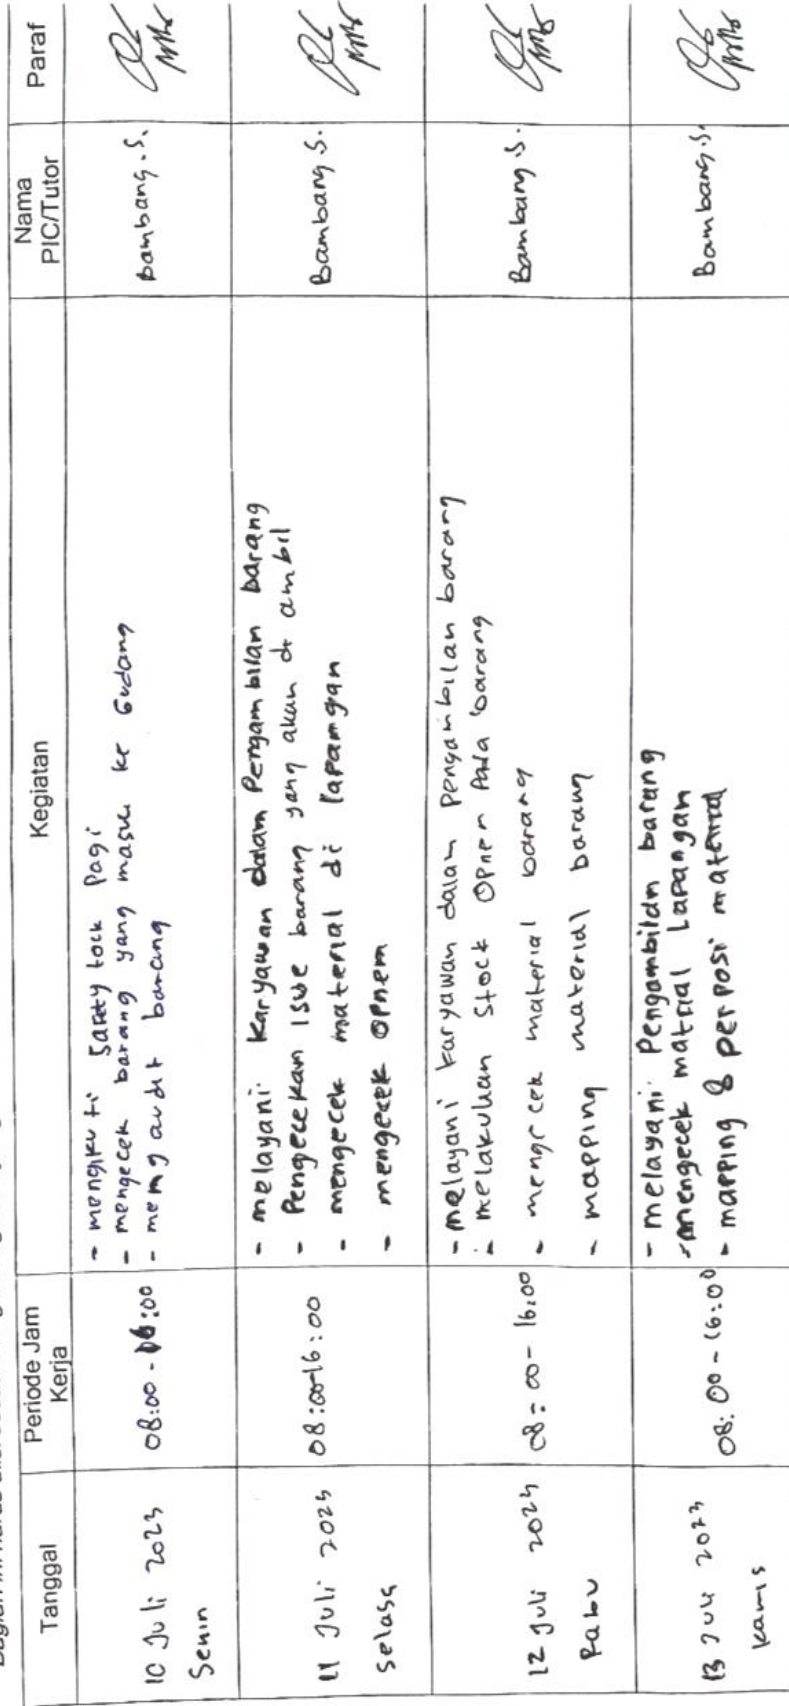 Bagian ini harus
Tanggal
Periode Jam
Kerja
Kegiatan
Nama
PIC/Tutor
Paraf
10 Juli 2023
Senin
08:00 - 16:00
- mengikuti Sarety tock Pagi
- mengecek barang yang masuk ke Gudang
- mengaudit barang
Bambang.S.
11 Juli 2023
Selasa
08:00-16:00
- melayani Karyawan dalam Pengambilan barang
- Pengecekan Isue barang yang akan di ambil
- mengecek material di lapangan
- mengecek Opnem
Bambang.S.
12 Juli 2023
Rabu
08:00-16:00
- melayani karyawan dalam pengambilan barang
- melakukan Stock Opnem Pada barang
- mengecek material barang
- mapping material barang
Bambang.S.
13 Juli 2023
Kamis
08:00-16:00
- melayani Pengambilan barang
- mengecek matrial Lapangan
- mapping & perposi material
Bambang.S.